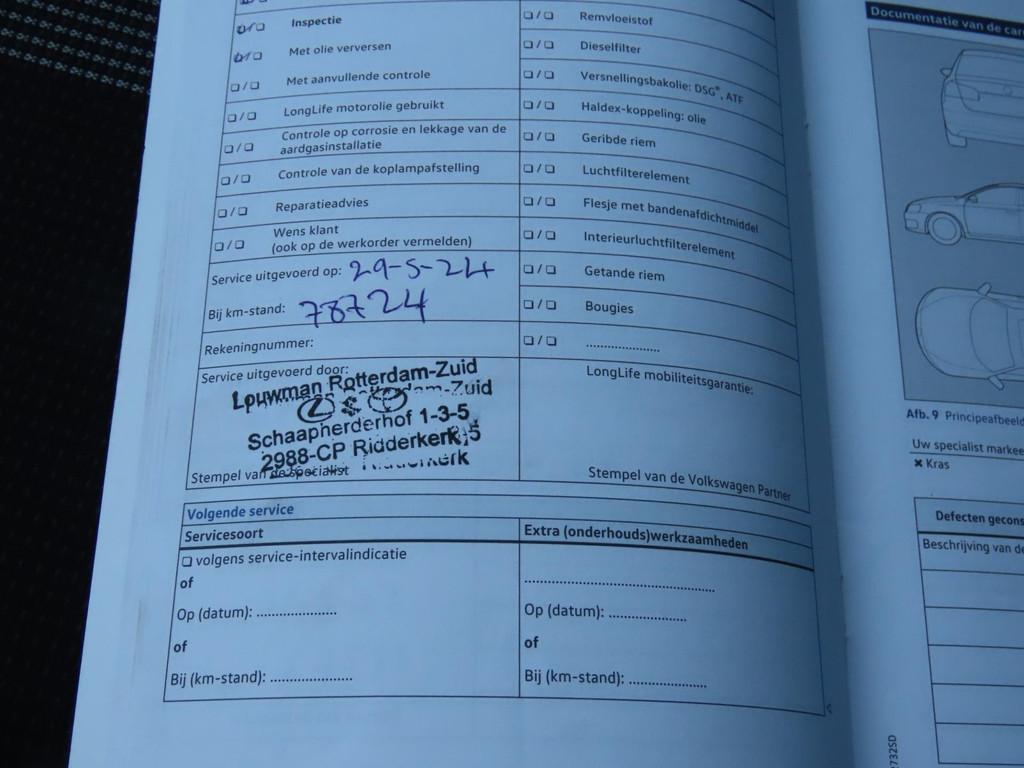 Inspectie
Met olie verversen
Met aanvullende controle
LongLife motorolie gebruikt
Controle op corrosie en lekkage van de
aardgasinstallatie
Controle van de koplampafstelling
Reparatieadvies
Wens klant
(ook op de werkorder vermelden)
Service uitgevoerd op: 29-5-24
Bij km-stand: 78724
Rekeningnummer:
Service uitgevoerd door:
Louwman Rotterdam-Zuid
Schaapherderhof 1-3-5
2988-CP Ridderkerk
Stempel van de specialist
Remvloeistof
Dieselfilter
Versnellingsbakolie: DSG®, ATF
Haldex-koppeling: olie
Geribde riem
Luchtfilterelement
Flesje met bandenafdichtmiddel
Interieurluchtfilterelement
Getande riem
Bougies
....................
LongLife mobiliteitsgarantie:
Stempel van de Volkswagen Partner
Volgende service
Servicesoort
Extra (onderhouds)werkzaamheden
volgens service-intervalindicatie
of
Op (datum): ....................
of
Bij (km-stand): ....................
..................................................
Op (datum): ....................
of
Bij (km-stand): ....................
Documentatie van de car
Afb. 9 Principeafbeeld
Uw specialist markee
✖ Kras
Defecten gecons
Beschrijving van de
732SD